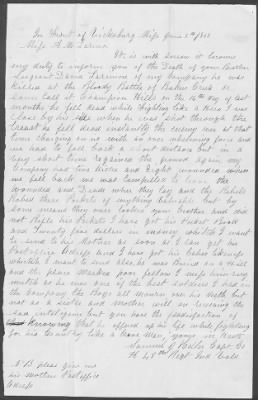 In Front of Vicksburg Miss June 2nd /863
Miss A. M. Larew
It is with sorrow it become
my duty to inform you of the Death of your Brother
Sergeant Dana Larew of my Company he was
killed at the Bloody Battle of Baker Creek or
some call it Champion Hills on the 16th day of last
month he fell dead while fighting like a Hero I was
Close by his side when he was shot through the
breast as he fell dead instantly the enemy was at that
time charging on us with an over whelming force and
we had to fall back a short distance but in a
very short time regained the ground again my
Company had five killed and Eight wounded when
we fell back we was compelled to leave the
wounded and Dead where they lay and the Rebels
Robed there Pockets of everything valuable but by
some means they over looked your brother and did
not Rifle his Pockets I have got his Pocket Book
and Twenty five dollars in money which I want
to send to his Mother as soon as I can get her
Post office Adress and I have got his
which I want to send also he was Buried on a Hill
and the place Marked poor fellow I miss him very
much as he was one of the best soldiers I had in
the Company the Boys all mourn over his Death but
not as a sister and mother will on receiving the
sad inteligence but you have the satisfaction of
Knowing that he offered up his life while fighting
for his Country like a true Man, yours in Truth
Samuel Capt Co
48th Regt Ind
N B please give me
his mothers Post office
Adress